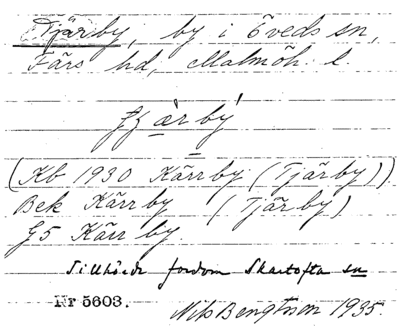 Tjärby, by i Öveds sn,
Färs hd, Malmöh. l.
(Kb 1930 Kärrby (Tjärby))
Bek Kärrby (Tjärby)
G5 Kärrby
Tillhörde fordom Skartofta sn
Nr 5603. Nils Bengtsson 1935.